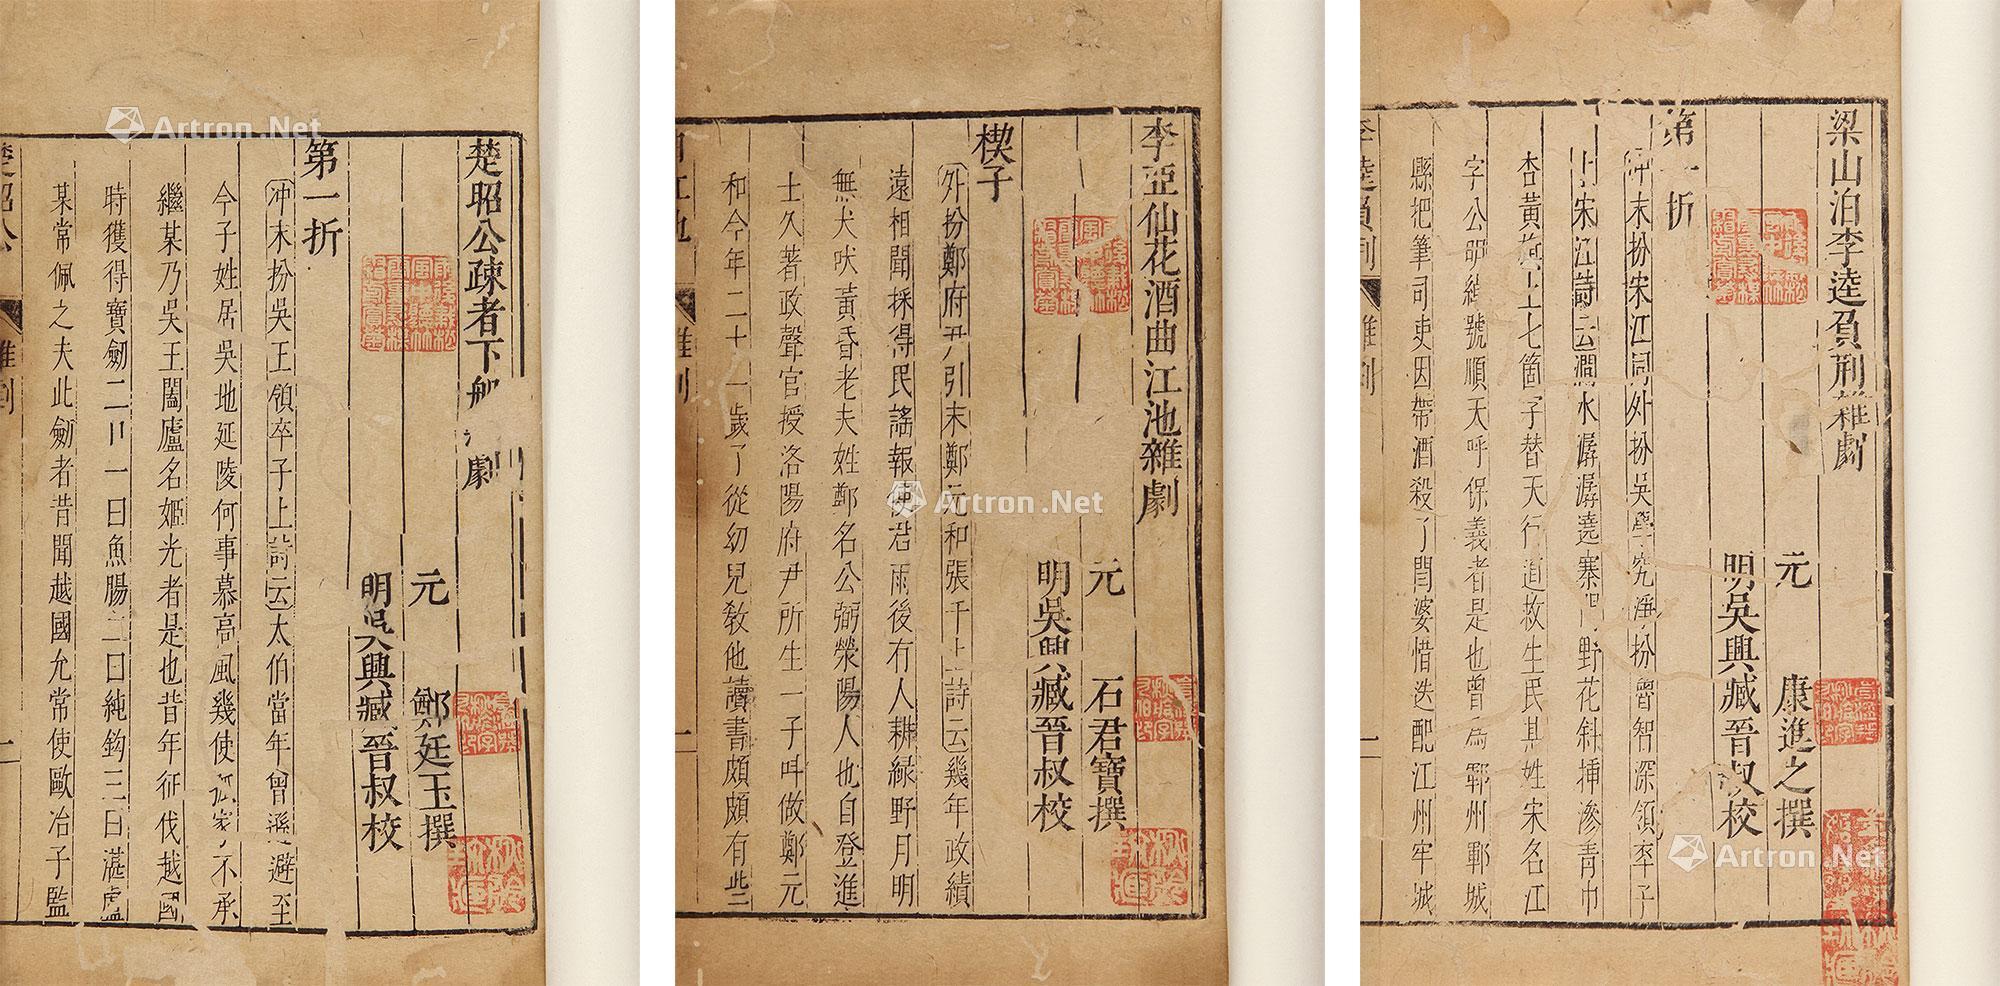 楚昭公疎者下船 劇
元 鄭廷玉撰
明吳興臧晉叔校
第一折
冲末扮吳王領卒子上詩云太伯當年曾遜避至
今子姓居吳地延陵何事慕高風幾使孤家不承
繼某乃吳王闔廬名姬光者是也昔年征伐越國
時獲得寶劒三口一曰魚腸二曰純鈎三曰湛盧
某常佩之夫此劒者昔聞越國允常使歐冶子監
楚昭公
雜劇
李亞仙花酒曲江池雜劇
元 石君寶撰
明吳興臧晉叔校
楔子
外扮鄭府尹引末鄭元和張千上詩云幾年政績
遠相聞採得民謠報使君雨後有人耕綠野月明
無犬吠黃昏老夫姓鄭名公弼滎陽人也自登進
士久著政聲官授洛陽府尹所生一子叫做鄭元
和今年二十一歲了從幼兒敎他讀書頗頗有些
曲江池
雜劇
梁山泊李逵負荆雜劇
元 康進之撰
明吳興臧晉叔校
第一折
冲末扮宋江同外扮吳學究淨扮魯智深領卒子
上宋江詩云澗水潺潺遶寨門野花斜揷滲青巾
杏黃旗上七箇字替天行道救生民某姓宋名江
字公明綽號順天呼保義者是也曾爲鄆州鄆城
縣把筆司吏因帶酒殺了閻婆惜迭配江州牢城
李逵負荆
雜劇
Artron.Net
Artron.Net
Artron.Net